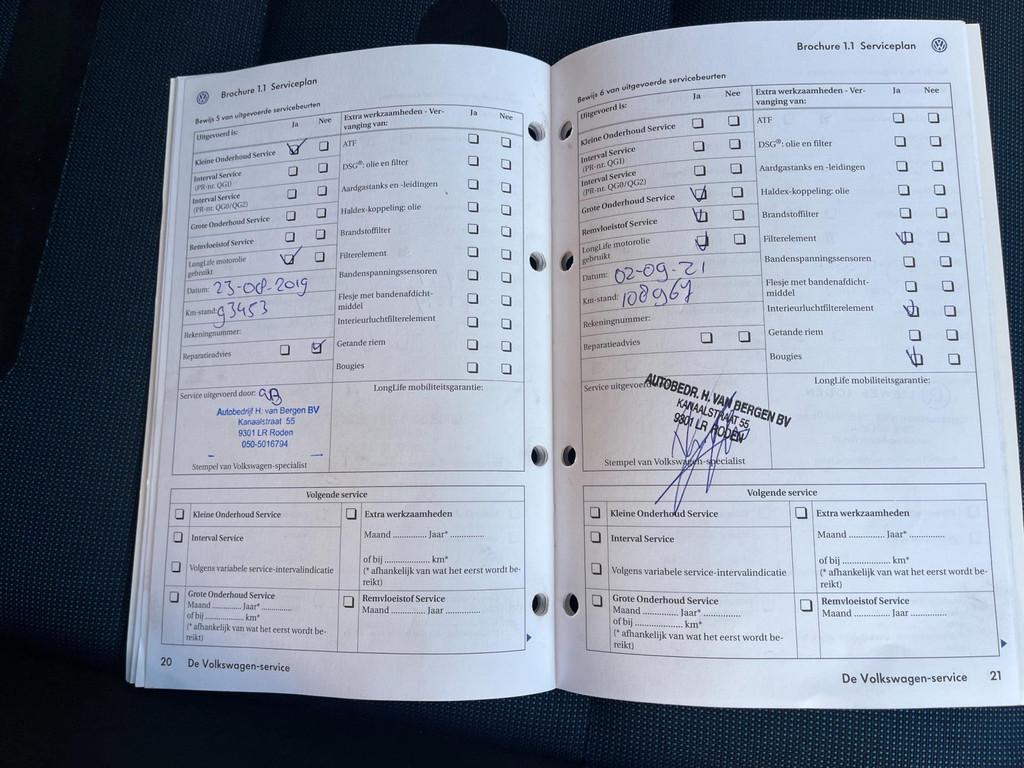 Brochure 1.1 Serviceplan
Bewijs 5 van uitgevoerde servicebeurten
Uitgevoerd is:
Ja
Nee
Kleine Onderhoud Service
Interval Service
(PR-nr. QG1)
Interval Service
(PR-nr. QG0/QG2)
Grote Onderhoud Service
Remvloeistof Service
LongLife motorolie
gebruikt
Datum: 23-08-2019
Km-stand: 93453
Rekeningnummer:
Reparatieadvies
Extra werkzaamheden - Ver-
vanging van:
Ja
Nee
ATF
DSG®: olie en filter
Aardgastanks en -leidingen
Haldex-koppeling: olie
Brandstoffilter
Filterelement
Bandenspanningssensoren
Flesje met bandenafdicht-
middel
Interieurluchtfilterelement
Getande riem
Bougies
Service uitgevoerd door:
Autobedrijf H. van Bergen BV
Kanaalstraat 55
9301 LR Roden
050-5016794
Stempel van Volkswagen-specialist
LongLife mobiliteitsgarantie:
Volgende service
Kleine Onderhoud Service
Interval Service
Volgens variabele service-intervalindicatie
Grote Onderhoud Service
Maand ........... Jaar* .............
of bij ................. km*
(* afhankelijk van wat het eerst wordt be-
reikt)
Extra werkzaamheden
Maand ............. Jaar* .............
of bij .................. km*
(* afhankelijk van wat het eerst wordt be-
reikt)
Remvloeistof Service
Maand ............. Jaar .............
20 De Volkswagen-service
Brochure 1.1 Serviceplan
Bewijs 6 van uitgevoerde servicebeurten
Uitgevoerd is:
Ja
Nee
Kleine Onderhoud Service
Interval Service
(PR-nr. QG1)
Interval Service
(PR-nr. QG0/QG2)
Grote Onderhoud Service
Remvloeistof Service
LongLife motorolie
gebruikt
Datum: 02-09-21
Km-stand: 108967
Rekeningnummer:
Reparatieadvies
Extra werkzaamheden - Ver-
vanging van:
Ja
Nee
ATF
DSG®: olie en filter
Aardgastanks en -leidingen
Haldex-koppeling: olie
Brandstoffilter
Filterelement
Bandenspanningssensoren
Flesje met bandenafdicht-
middel
Interieurluchtfilterelement
Getande riem
Bougies
Service uitgevoerd
AUTOBEDR. H. VAN BERGEN BV
KANAALSTRAAT 55
9301 LR RODEN
Stempel van Volkswagen-specialist
LongLife mobiliteitsgarantie:
Volgende service
Kleine Onderhoud Service
Interval Service
Volgens variabele service-intervalindicatie
Grote Onderhoud Service
Maand ............. Jaar* .............
of bij ................. km*
(* afhankelijk van wat het eerst wordt be-
reikt)
Extra werkzaamheden
Maand ............. Jaar* .............
of bij .................. km*
(* afhankelijk van wat het eerst wordt be-
reikt)
Remvloeistof Service
Maand ............. Jaar .............
De Volkswagen-service 21